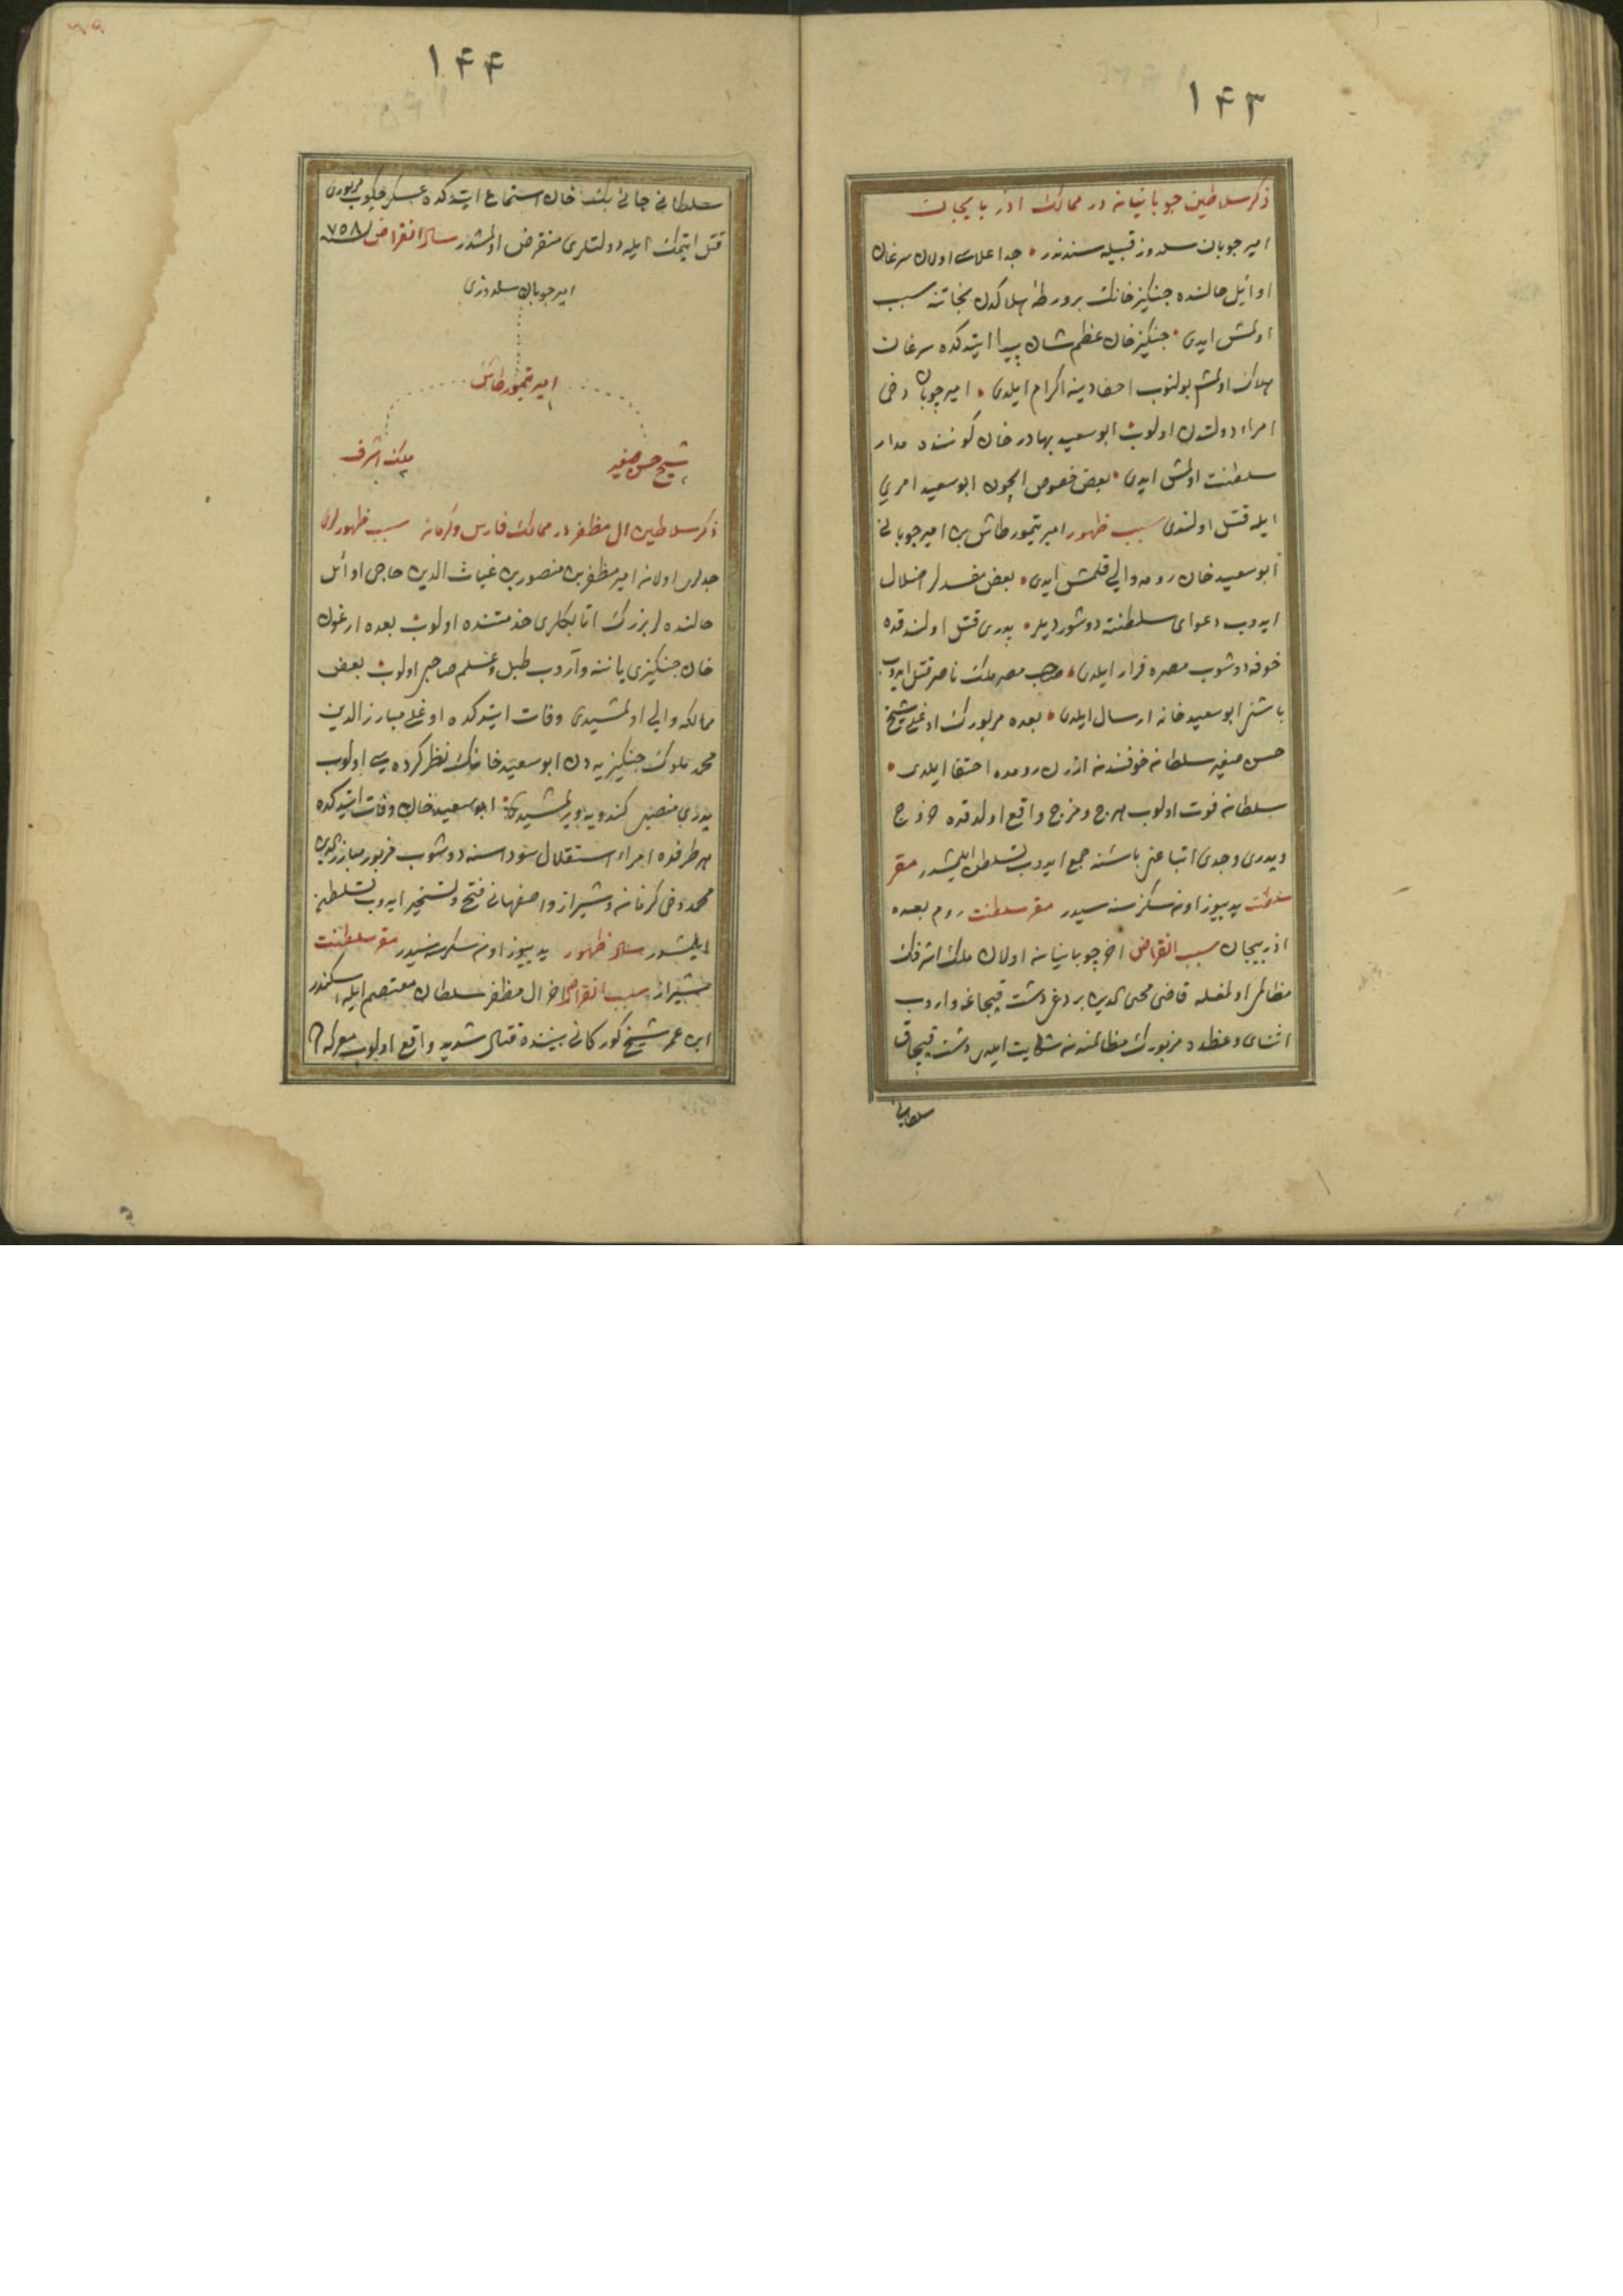 ۱۴۳
ذكر سلاطين جوبانيانه در ممالك اذربايجان
امير جوبان سلدوز قبيله سندندر جد اعلاسى اولان سرغان
اوائل حالنده جنكيز خانك بر ورطۀ هلاكدن نجاتنه سبب
اولمش ايدى جنكيز خان عظم شان پيدا ايتدكده سرغان
هلاك اولمش بولنوب احفادينه اكرام ايلدى امير جوبان دخى
امراء دولتدن اولوب ابو سعيد بهادر خان كوننده مدار
سلطنت اولمش ايدى بعض خصوص ايچون ابو سعيد امرى
ايله قتل اولندى سبب ظهور امير تيمور طاش بن امير جوبانى
ابو سعيد خان رومه والى قلمش ايدى بعض مفسدلر اضلال
ايدوب دعواى سلطنته دوشورديلر پدرى قتل اولندقده
خوفه دوشوب مصره فرار ايلدى صاحب مصر ملك ناصر قتل ايدوب
باشنى ابو سعيد خانه ارسال ايلدى بعده مزبورك اوغلى شيخ
حسن صغير سلطانه خوفندنه انلرن رومده اختفا ايلدى
سلطانه فوت اولوب هرج ومرج واقع اولدقده خروج
ويدرى وجدى اتباعنى باشنه جمع ايدوب تسلطن ايلمشدر مقر
سلطنت يديوز اونه سكز سنه سيدر مقر سلطنت روم بعده
اذربيجان سبب انقراض اخر چوبانيانه اولان ملك اشرفك
مظالمى اولمغله قاضى محى الدين بردغى دشت قپچاغه واروب
اثناى وعظده مزبورك مظالمندنه شكايت ايلدى دشت قپچاق
سلطانى
۱۴۴
سلطانى جانى بك خان استماع ايتدكده عسكر چكوب مزبورى
قتل ايتمك ايله دولتلرى منقرض اولمشدر سال انقراض ۷۵۸
امير جوبان سلدوزى
امير تيمور طاش
شيخ حسن صغير
ملك اشرف
ذكر سلاطين ال مظفر در ممالك فارس وكرمانه سبب ظهورلرى
جدلرى اولانه امير مظفر بن منصور بن غياث الدين حاجى اوائل
حالنده لر بزرك اتابكلرى خدمتنده اولوب بعده ارغون
خان جنكيزى ياننه واروب طبل وعلم صاحبى اولوب بعض
ممالكه والى اولمشيدى وفات ايتدكده اوغلى مبارز الدين
محمد ملوك جنكيزيه دن ابو سعيد خانك نظر كرده سى اولوب
پدرى منصبى كندويه ويرلمشيدى ابو سعيد خان وفات ايتدكده
هر طرفده امراء استقلال سوداسنه دوشوب مزبور مبارز الدين
محمد دخى كرمانه وشيراز واصفهانى فتح وتسخير ايدوب تسلطن
ايلمشدر سال ظهور يديوز اونه سكز سنه سيدر مقر سلطنت
شيراز سبب انقراض اخر ال مظفر سلطان معتصم ايله اسكندر
ابن عمر شيخ كوركانى بيننده قتال شديد واقع اولوب معركه ده